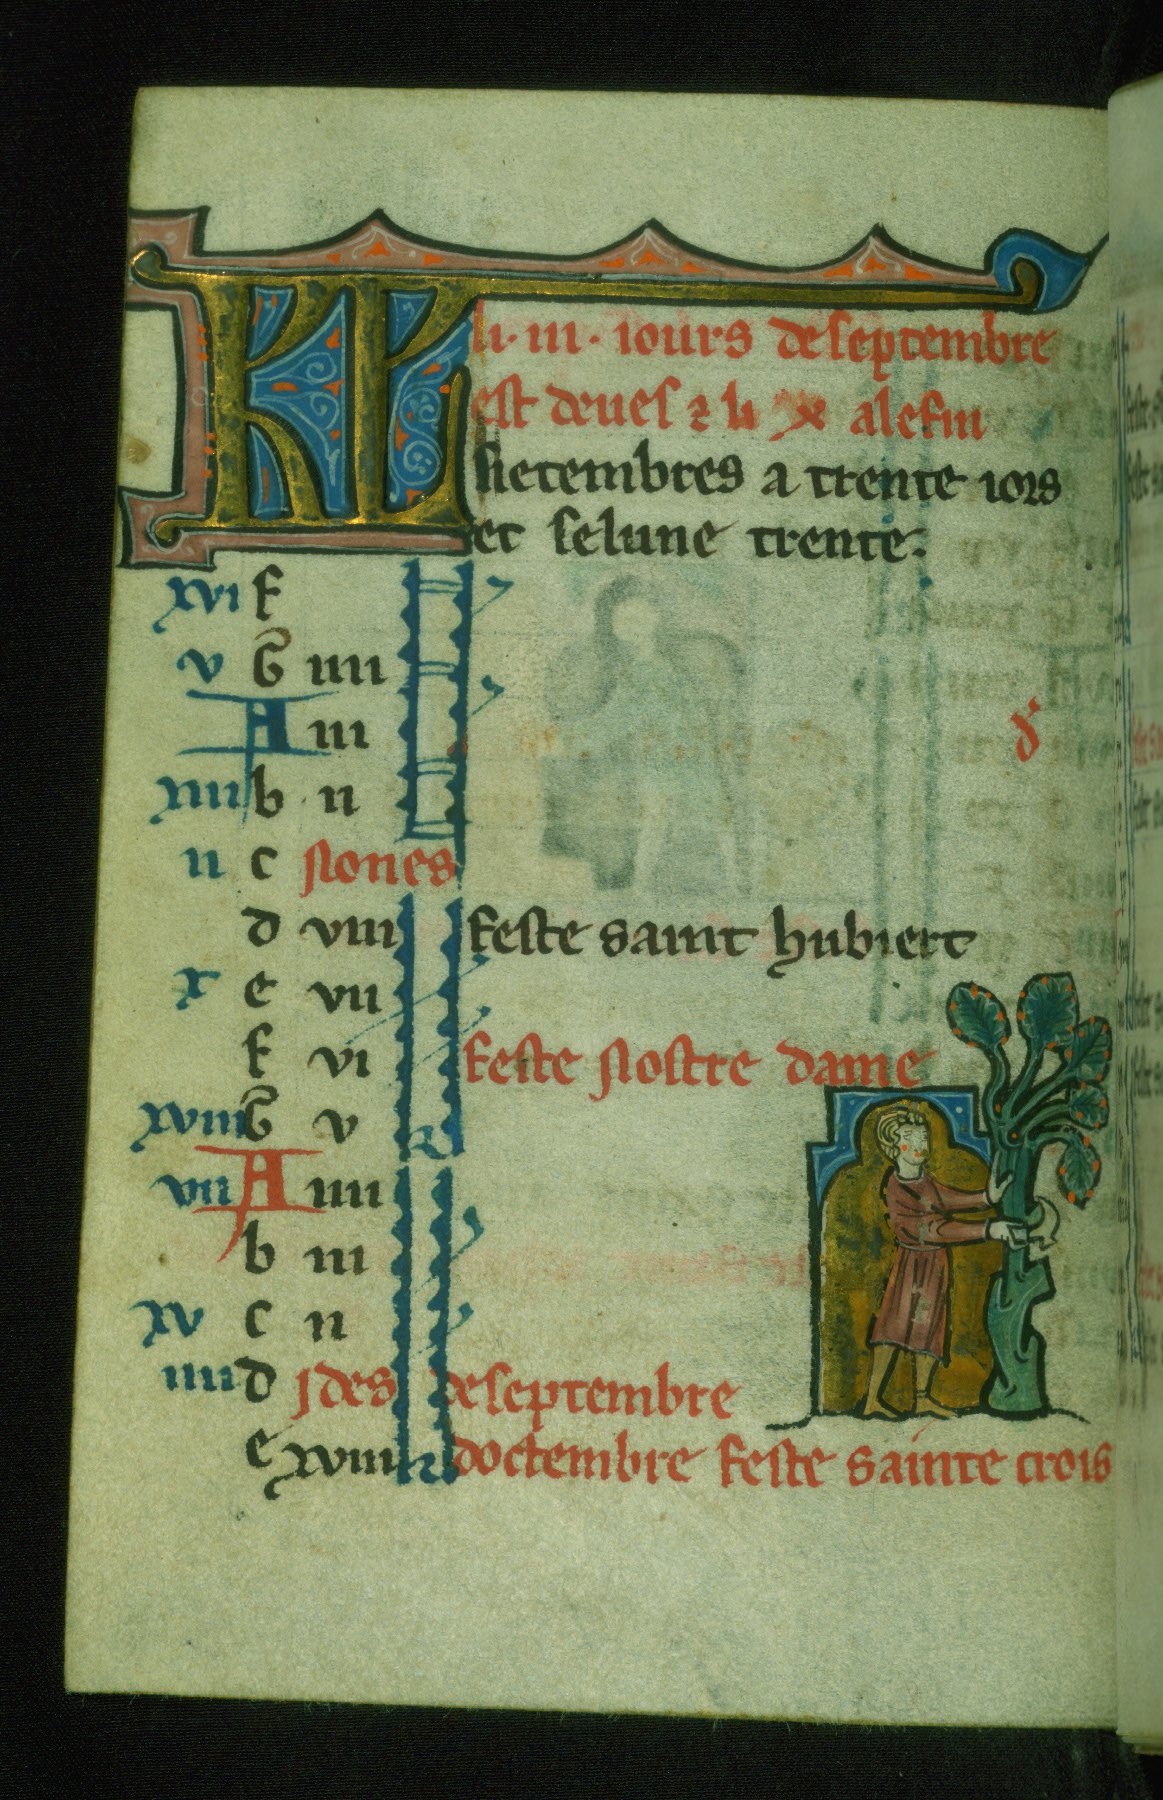 KL li·iii· iours de septembre
est deues ⁊ li x a le fin
Sietembres a trente iors
et se lune trente.
xvi f
v G iiii
A iii d'
xiiii b ii
ii c Nones
d viii feste saint hubiert
x e vii
f vi feste Nostre dame
xviii G v
vii A iiii
b iii
xv c ii
iiii d Ides de septembre
e xviii doctembre feste sainte crois